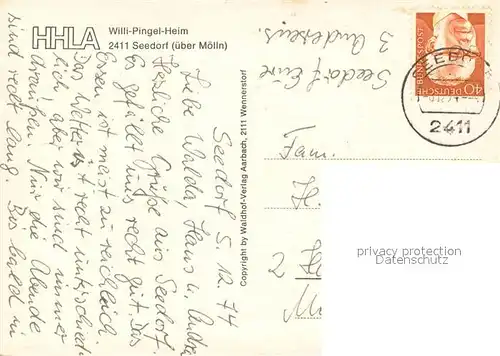 HHLA
Willi-Pingel-Heim
2411 Seedorf (über Mölln)
Seedorf 5.12.74
Liebe Walda, Hans u. Andrea
Herzliche Grüße aus Seedorf.
Es gefällt uns recht gut. Das
Essen ist meist zu reichlich.
Das Wetter ist recht unterschied-
lich aber wir sind immer
draußen. Nur die Abende
sind recht lang. Bis bald in
Seedorf Eure
3
Copyright by Waldhof-Verlag Aarbach, 2111 Wennerstorf
DEUTSCHE BUNDESPOST
40
2411
Fam.
H.
2
privacy protection
Datenschutz